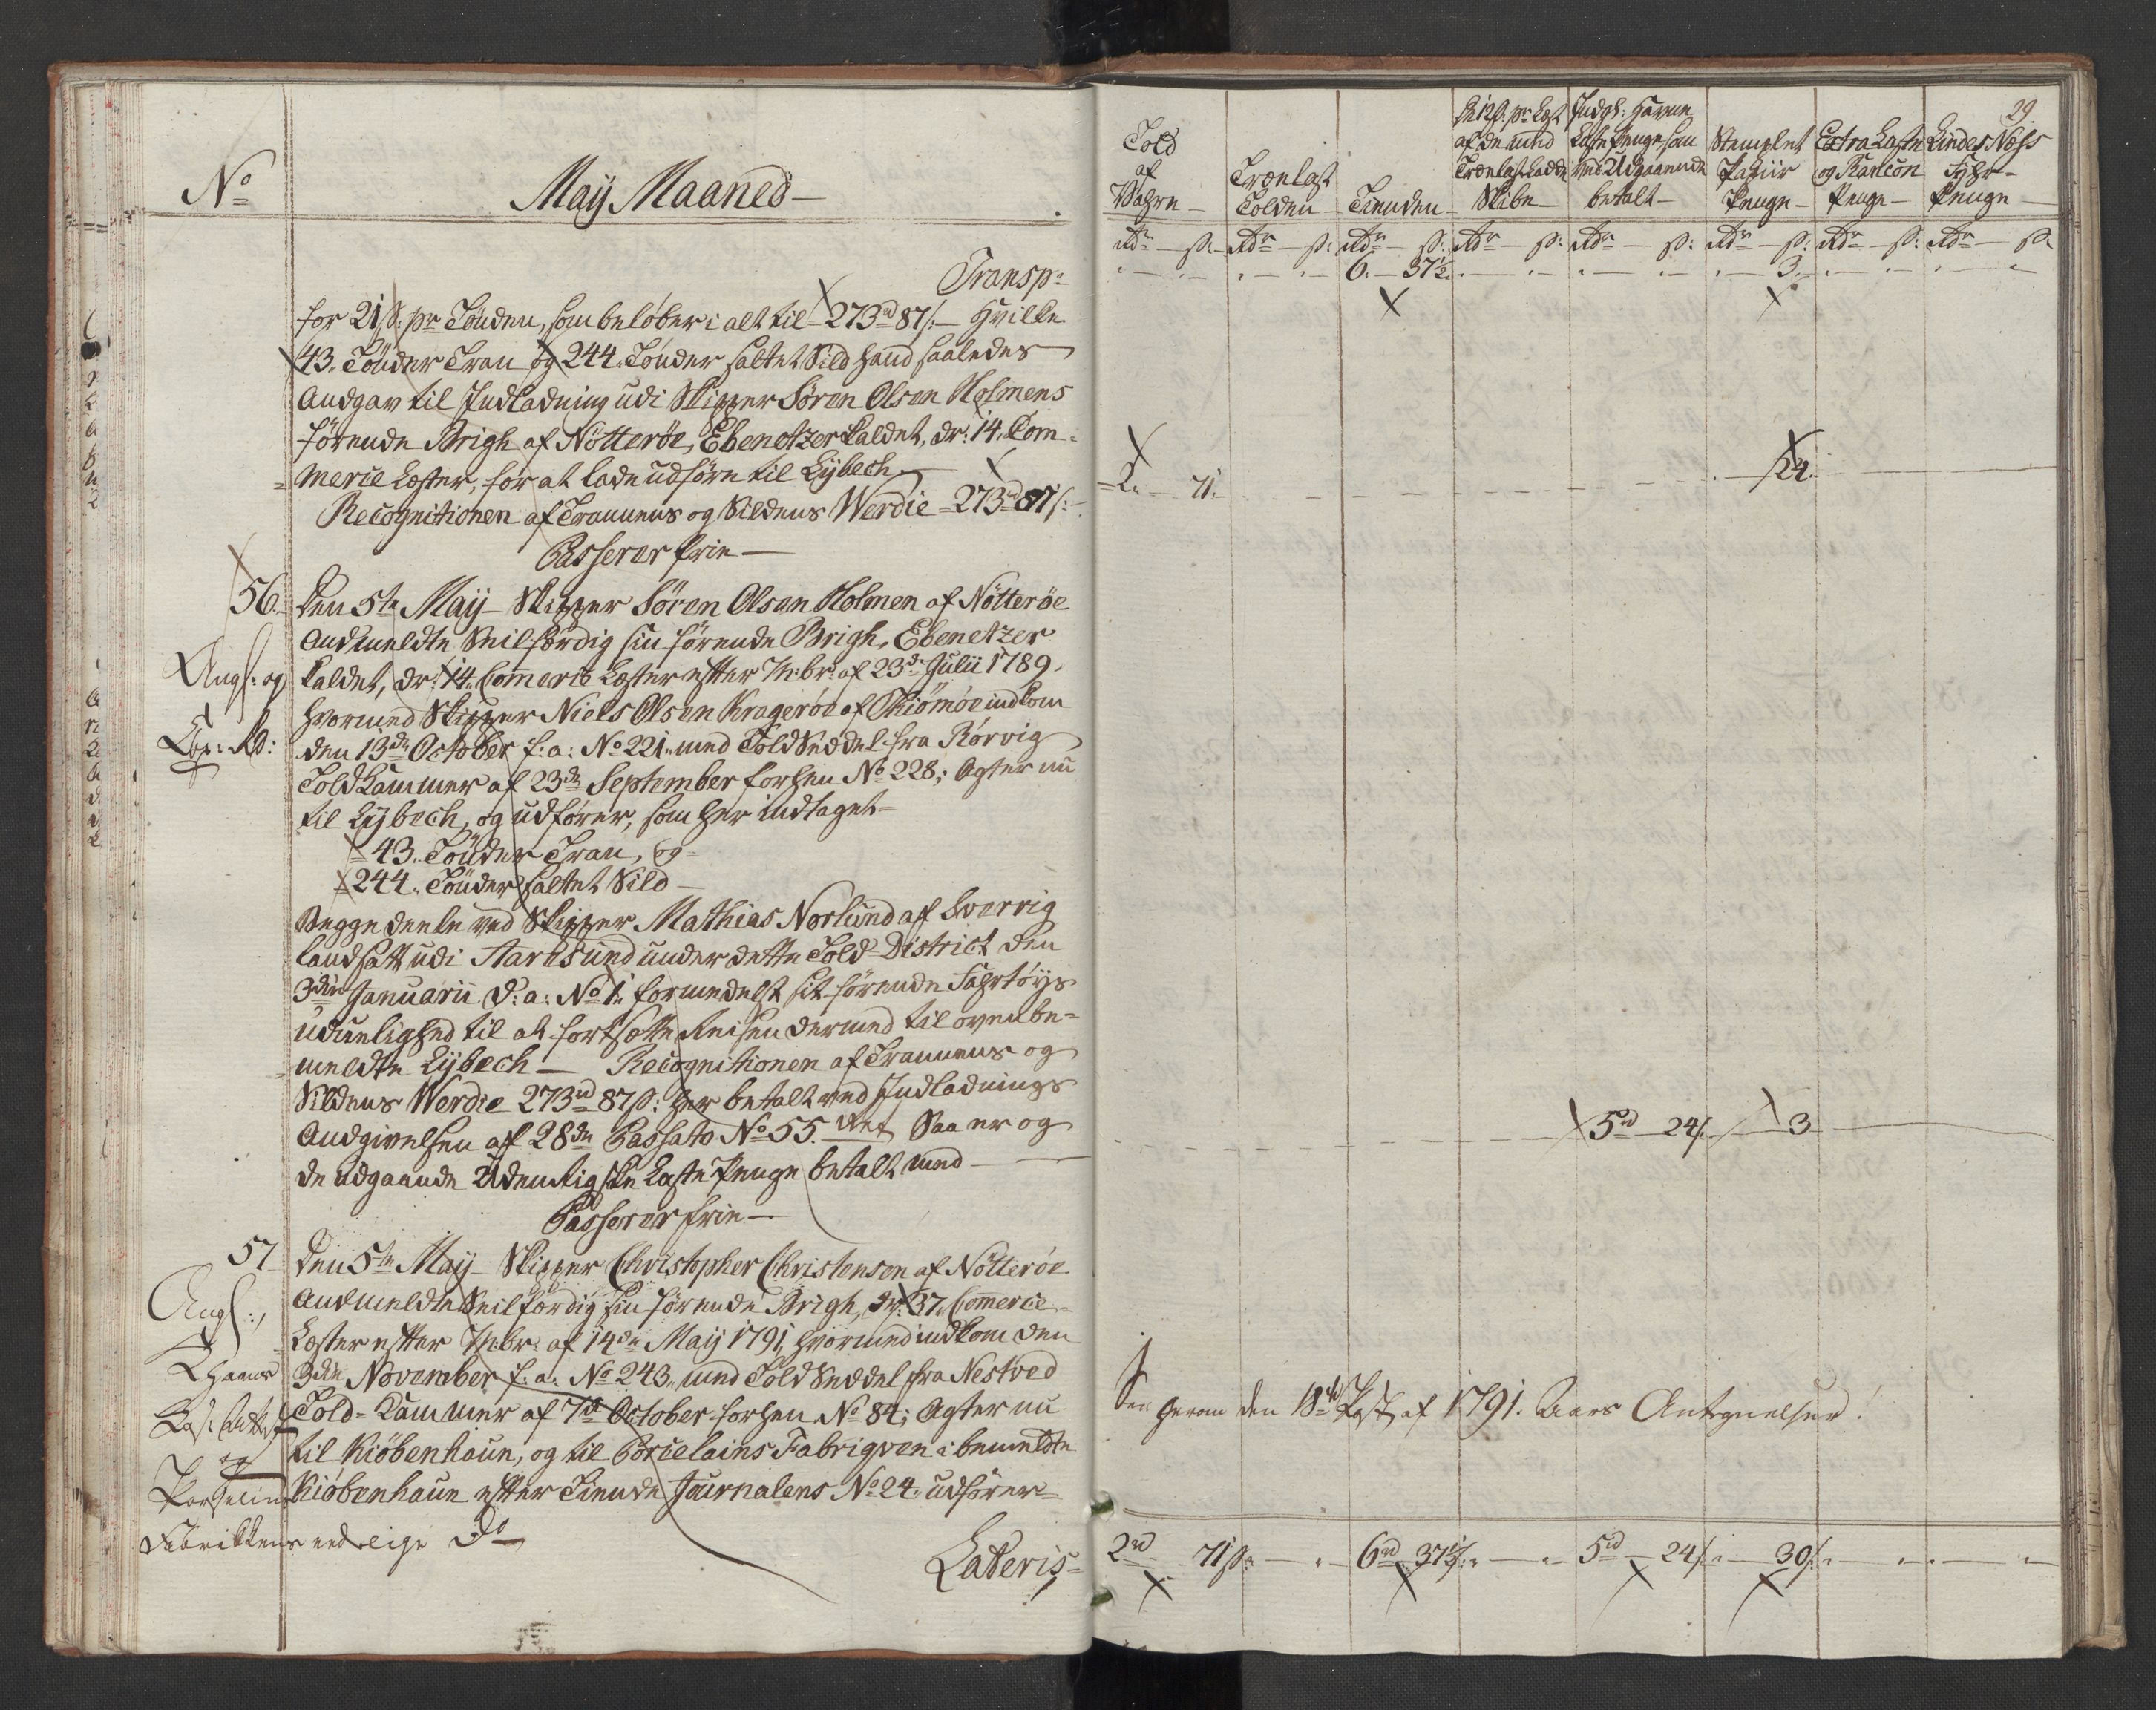 No
May Maaned
Transp:
for 21 ß: pr Tönden, som beløber i alt til 273 rd 87 ß: Hvilke
43 Tönder Tran og 244 Tönder saltet Sild hand saaledes
Andgav til Indladning udi Skipper Sören Olsen Holmens
førende Brigh af Nötteröe, Ebenetzer kaldet, dr: 14 Com-
merce Læster, for at lade udføre til Lÿbech
Recognitionen af Trannens og Sildens Werdie 273 rd 87 ß:
Passerer frie
56 Den 5te Maÿ Skipper Sören Olsen Holmen af Nötteröe
Andmeldte Seilfærdig sin førende Brigh, Ebenetzer
Angf: og kaldet, dr: 14 Commerce Læster efter M:br: af 23de Julii 1789,
hvormed Skipper Niels Olsen Krageröe af Kiömöe indkom
den 13de October f: a: No 221 med ToldSeddel fra Rörvig
Told Kammer af 23de September forhen No 228; Agter nu
til Lÿbech, og udfører, som her indtaget
43 Tönder Tran, og
244 Tönder saltet Sild
Begge deele ved Skipper Mathias Norlund af Sverrig
landsatt udi Aarøsund under dette Told District den
3die Januarii d: a: No 1 formedelst sit førende Fahrtøÿs
uduelighed til at fortsætte Reisen dermed til ovenbe-
meldte Lÿbech Recognitionen af Trannens og
Sildens Werdie 273 rd 87 ß: her betalt ved Indladnings
Andgivelsen af 28de Passato No 55 Saa er og
de udgaaende Udenrigske Læste Penge betalt med
Passerer frie
57 Den 5te Maÿ Skipper Christopher Christensen af Nötteröe
Angf: Andmeldte Seilfærdig sin førende Brigh, dr: 37 Commerce
Læster efter M:br: af 14de Maÿ 1791, hvormed indkom den
3die November f: a: No 243 med ToldSeddel fra Nestved
Told-Kammer af 7de October forhen No 84; Agter nu
til Kiöbenhaun, og til Porcelains Fabriqven i bemeldte
og
Kiöbenhaun efter Tiende Journalens No 24 udfører
Fabrikkens
Lateris
29.
Told
af
Wahre
Trælast
Tolden
Tienden
à 12 ß: pr Læst
af de med
Trælast Ladde
Skibe
Indgl: Havne
Læste Penge som
ved Udgaaende
betalt
Stemplet
Papiir
Penge
Extra Læste
og Rancon
Penge
Lindes Næss
Fyhr-
Penge
Rdr ß: Rdr ß: Rdr ß: Rdr ß: Rdr ß: Rdr ß: Rdr ß: Rdr ß:
6 37½ 3
2 71 24
5 rd 24 ß 3
See herom den 18de Post af 1791 Aars Antegnelser!
2 rd 71 ß: 6 rd 37½ ß 5 rd 24 ß 30 ß